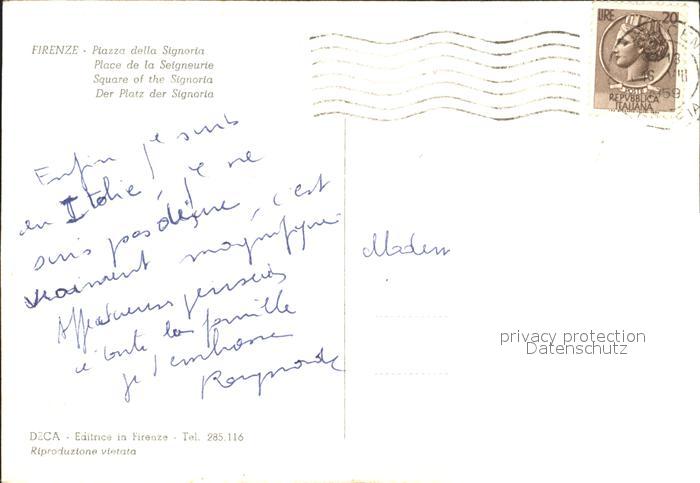 FIRENZE - Piazza della Signoria
Place de la Seigneurie
Square of the Signoria
Der Platz der Signoria
LIRE 20
POSTE
REPVBBLICA
ITALIANA
Enfin je suis
en Italie, je ne
suis pas déçue, c'est
vraiment magnifique
Affectueuses pensées
à toute la famille
je t'embrasse
Raymonde
Madem
privacy protection
Datenschutz
DECA - Editrice in Firenze - Tel. 285.116
Riproduzione vietata